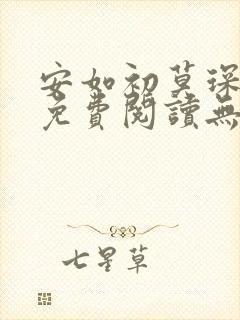 安如初莫琛
免費閱讀無
七星草